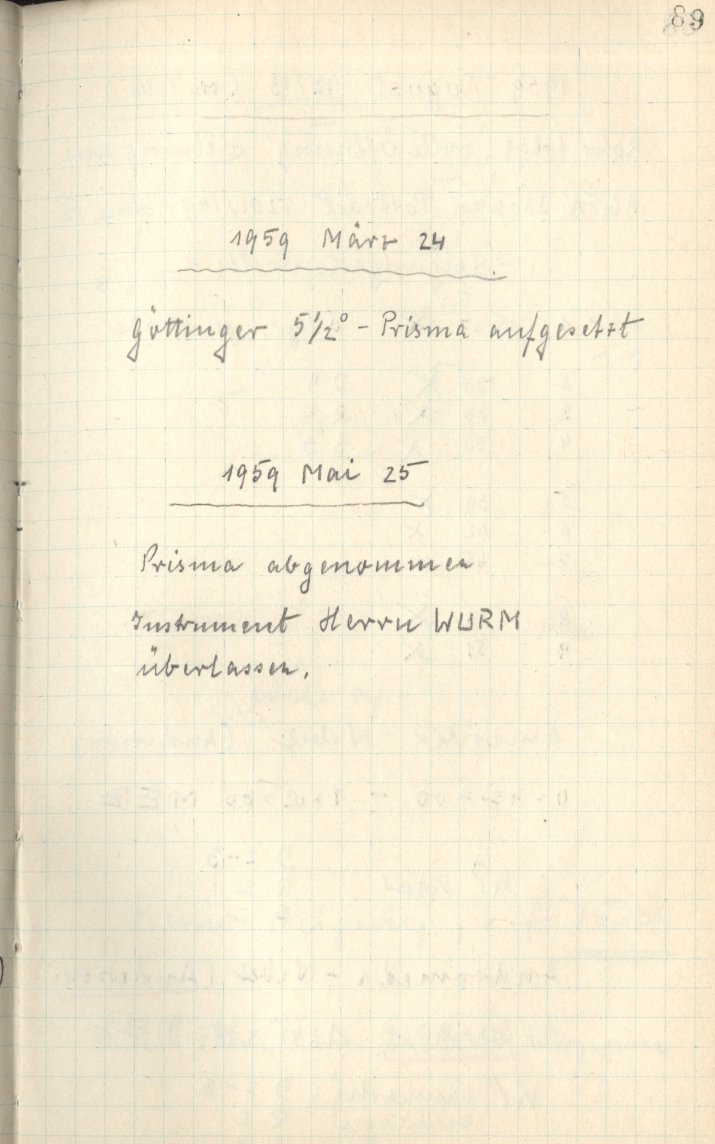 89
1959 März 24
Göttinger 5 1/2° - Prisma aufgesetzt
1959 Mai 25
Prisma abgenommen
Instrument Herrn WURM
überlassen.